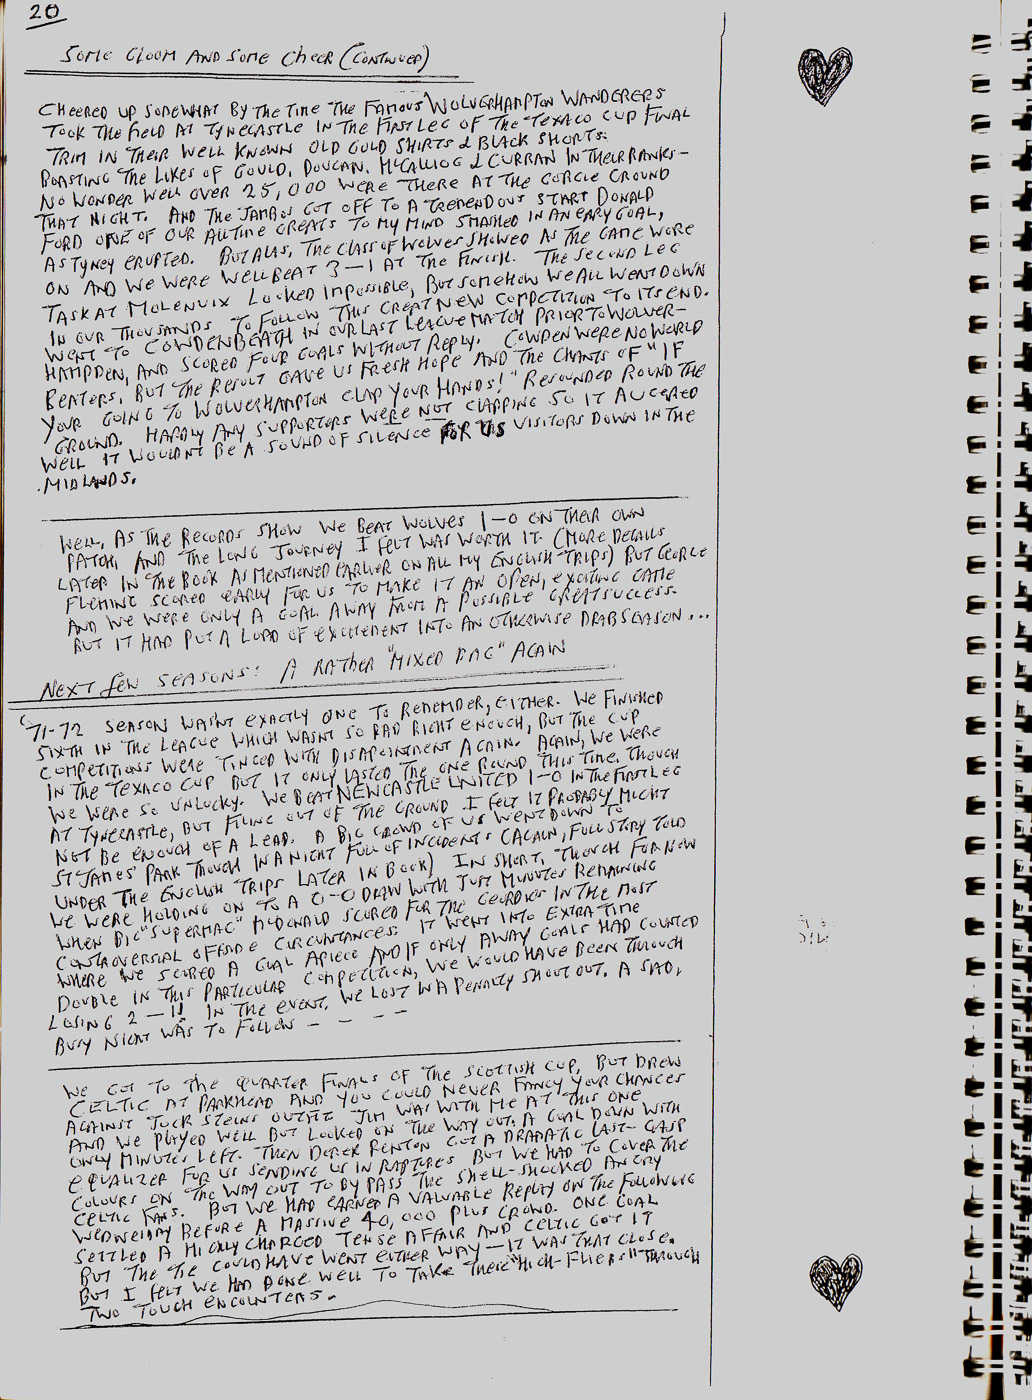 20
SOME GLOOM AND SOME CHEER (CONTINUED)
CHEERED UP SOMEWHAT BY THE TIME THE FAMOUS WOLVERHAMPTON WANDERERS
TOOK THE FIELD AT TYNECASTLE IN THE FIRST LEG OF THE TEXACO CUP FINAL
TRIM IN THEIR WELL KNOWN OLD GOLD SHIRTS & BLACK SHORTS.
BOASTING THE LIKES OF GOULD, DOUGAN, McCALLIOG & CURRAN IN THEIR RANKS—
NO WONDER WELL OVER 25,000 WERE THERE AT THE GORGIE GROUND
THAT NIGHT. AND THE JAMBOS GOT OFF TO A TREMENDOUS START DONALD
FORD ONE OF OUR ALLTIME GREATS TO MY MIND SMASHED IN AN EARY GOAL,
AS TYNEY ERUPTED. BUT ALAS, THE CLASS OF WOLVES SHOWED AS THE GAME WORE
ON AND WE WERE WELL BEAT 3—1 AT THE FINISH. THE SECOND LEG
TASK AT MOLENUIX LOOKED IMPOSSIBLE, BUT SOMEHOW WE ALL WENT DOWN
IN OUR THOUSANDS TO FOLLOW THIS GREAT NEW COMPETITION TO ITS END.
WENT TO COWDENBEATH IN OUR LAST LEAGUE MATCH PRIOR TO WOLVER-
HAMPDEN, AND SCORED FOUR GOALS WITHOUT REPLY. COWDEN WERE NO WORLD
BEATERS, BUT THE RESULT GAVE US FRESH HOPE AND THE CHANTS OF "IF
YOUR GOING TO WOLVERHAMPTON CLAP YOUR HANDS!" RESOUNDED ROUND THE
GROUND. HARDLY ANY SUPPORTERS WERE NOT CLAPPING SO IT AUGERED
WELL IT WOULDNT BE A SOUND OF SILENCE FOR US VISITORS DOWN IN THE
MIDLANDS.
WELL, AS THE RECORDS SHOW WE BEAT WOLVES 1—0 ON THEIR OWN
PATCH, AND THE LONG JOURNEY I FELT WAS WORTH IT. (MORE DETAILS
LATER IN THE BOOK AS MENTIONED EARLIER ON ALL MY ENGLISH TRIPS) BUT GEORGE
FLEMING SCORED EARLY FOR US TO MAKE IT AN OPEN, EXCITING GAME
AND WE WERE ONLY A GOAL AWAY FROM A POSSIBLE GREAT SUCCESS.
BUT IT HAD PUT A LOAD OF EXCITEMENT INTO AN OTHERWISE DRAB SEASON...
NEXT FEW SEASONS: A RATHER "MIXED BAG" AGAIN
'71-72 SEASON WASNT EXACTLY ONE TO REMEMBER, EITHER. WE FINISHED
SIXTH IN THE LEAGUE WHICH WASNT SO BAD RIGHT ENOUGH, BUT THE CUP
COMPETITIONS WERE TINGED WITH DISAPOINTMENT AGAIN. AGAIN, WE WERE
IN THE TEXACO CUP BUT IT ONLY LASTED THE ONE ROUND THIS TIME. THOUGH
WE WERE SO UNLUCKY. WE BEAT NEWCASTLE UNITED 1-0 IN THE FIRST LEG
AT TYNECASTLE, BUT FILING OUT OF THE GROUND I FELT IT PROBABLY MIGHT
NOT BE ENOUGH OF A LEAD. A BIG CROWD OF US WENT DOWN TO
ST JAMES' PARK THOUGH IN A NIGHT FULL OF INCIDENTS (AGAIN, FULL STORY TOLD
UNDER THE ENGLISH TRIPS LATER IN BOOK) IN SHORT, THOUGH FOR NOW
WE WERE HOLDING ON TO A 0-0 DRAW WITH JUST MINUTES REMAINING
WHEN BIG "SUPERMAC" McDONALD SCORED FOR THE GEORDIES IN THE MOST
CONTROVERSIAL OFFSIDE CIRCUMSTANCES. IT WENT INTO EXTRA TIME
WHERE WE SCORED A GOAL APIECE AND IF ONLY AWAY GOALS HAD COUNTED
DOUBLE IN THIS PARTICULAR COMPETITION, WE WOULD HAVE BEEN THROUGH
LOSING 2—1! IN THE EVENT, WE LOST IN A PENALTY SHOOT OUT. A SAD,
BUSY NIGHT WAS TO FOLLOW — — — —
WE GOT TO THE QUARTER FINALS OF THE SCOTTISH CUP, BUT DREW
CELTIC AT PARKHEAD AND YOU COULD NEVER FANCY YOUR CHANCES
AGAINST JOCK STEINS OUTFIT JIM WAS WITH ME AT THIS ONE
AND WE PLAYED WELL BUT LOOKED ON THE WAY OUT. A GOAL DOWN WITH
ONLY MINUTES LEFT. THEN DEREK RENTON GOT A DRAMATIC LAST-GASP
EQUALIZER FOR US SENDING US IN RAPTURES BUT WE HAD TO COVER THE
COLOURS ON THE WAY OUT TO BY PASS THE SHELL-SHOCKED ANGRY
CELTIC FANS. BUT WE HAD EARNED A VALUABLE REPLAY ON THE FOLLOWING
WEDNESDAY BEFORE A MASSIVE 40,000 PLUS CROWD. ONE GOAL
SETTLED A HIGHLY CHARGED TENSE AFFAIR AND CELTIC GOT IT
BUT THE TIE COULD HAVE WENT EITHER WAY — IT WAS THAT CLOSE.
BUT I FELT WE HAD DONE WELL TO TAKE THESE "HIGH-FLIERS" THROUGH
TWO TOUGH ENCOUNTERS.